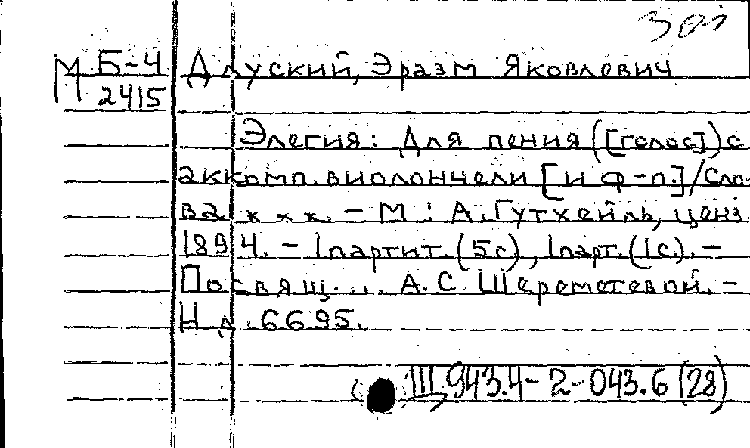 М Б-4 Длуский, Эразм Яковлевич
2415
Элегия: Для пения ([голос]) с
аккомп. виолончели [и ф-п.] / Сло-
ва х х х. - М.: А. Гутхейль, ценз.
1894. - 1 партит. (5 с), 1 парт. (1 с). -
Посвящ... А. С. Шереметевой. -
Н. д. 6695.
Щ 943.4-2-043.6 (28)